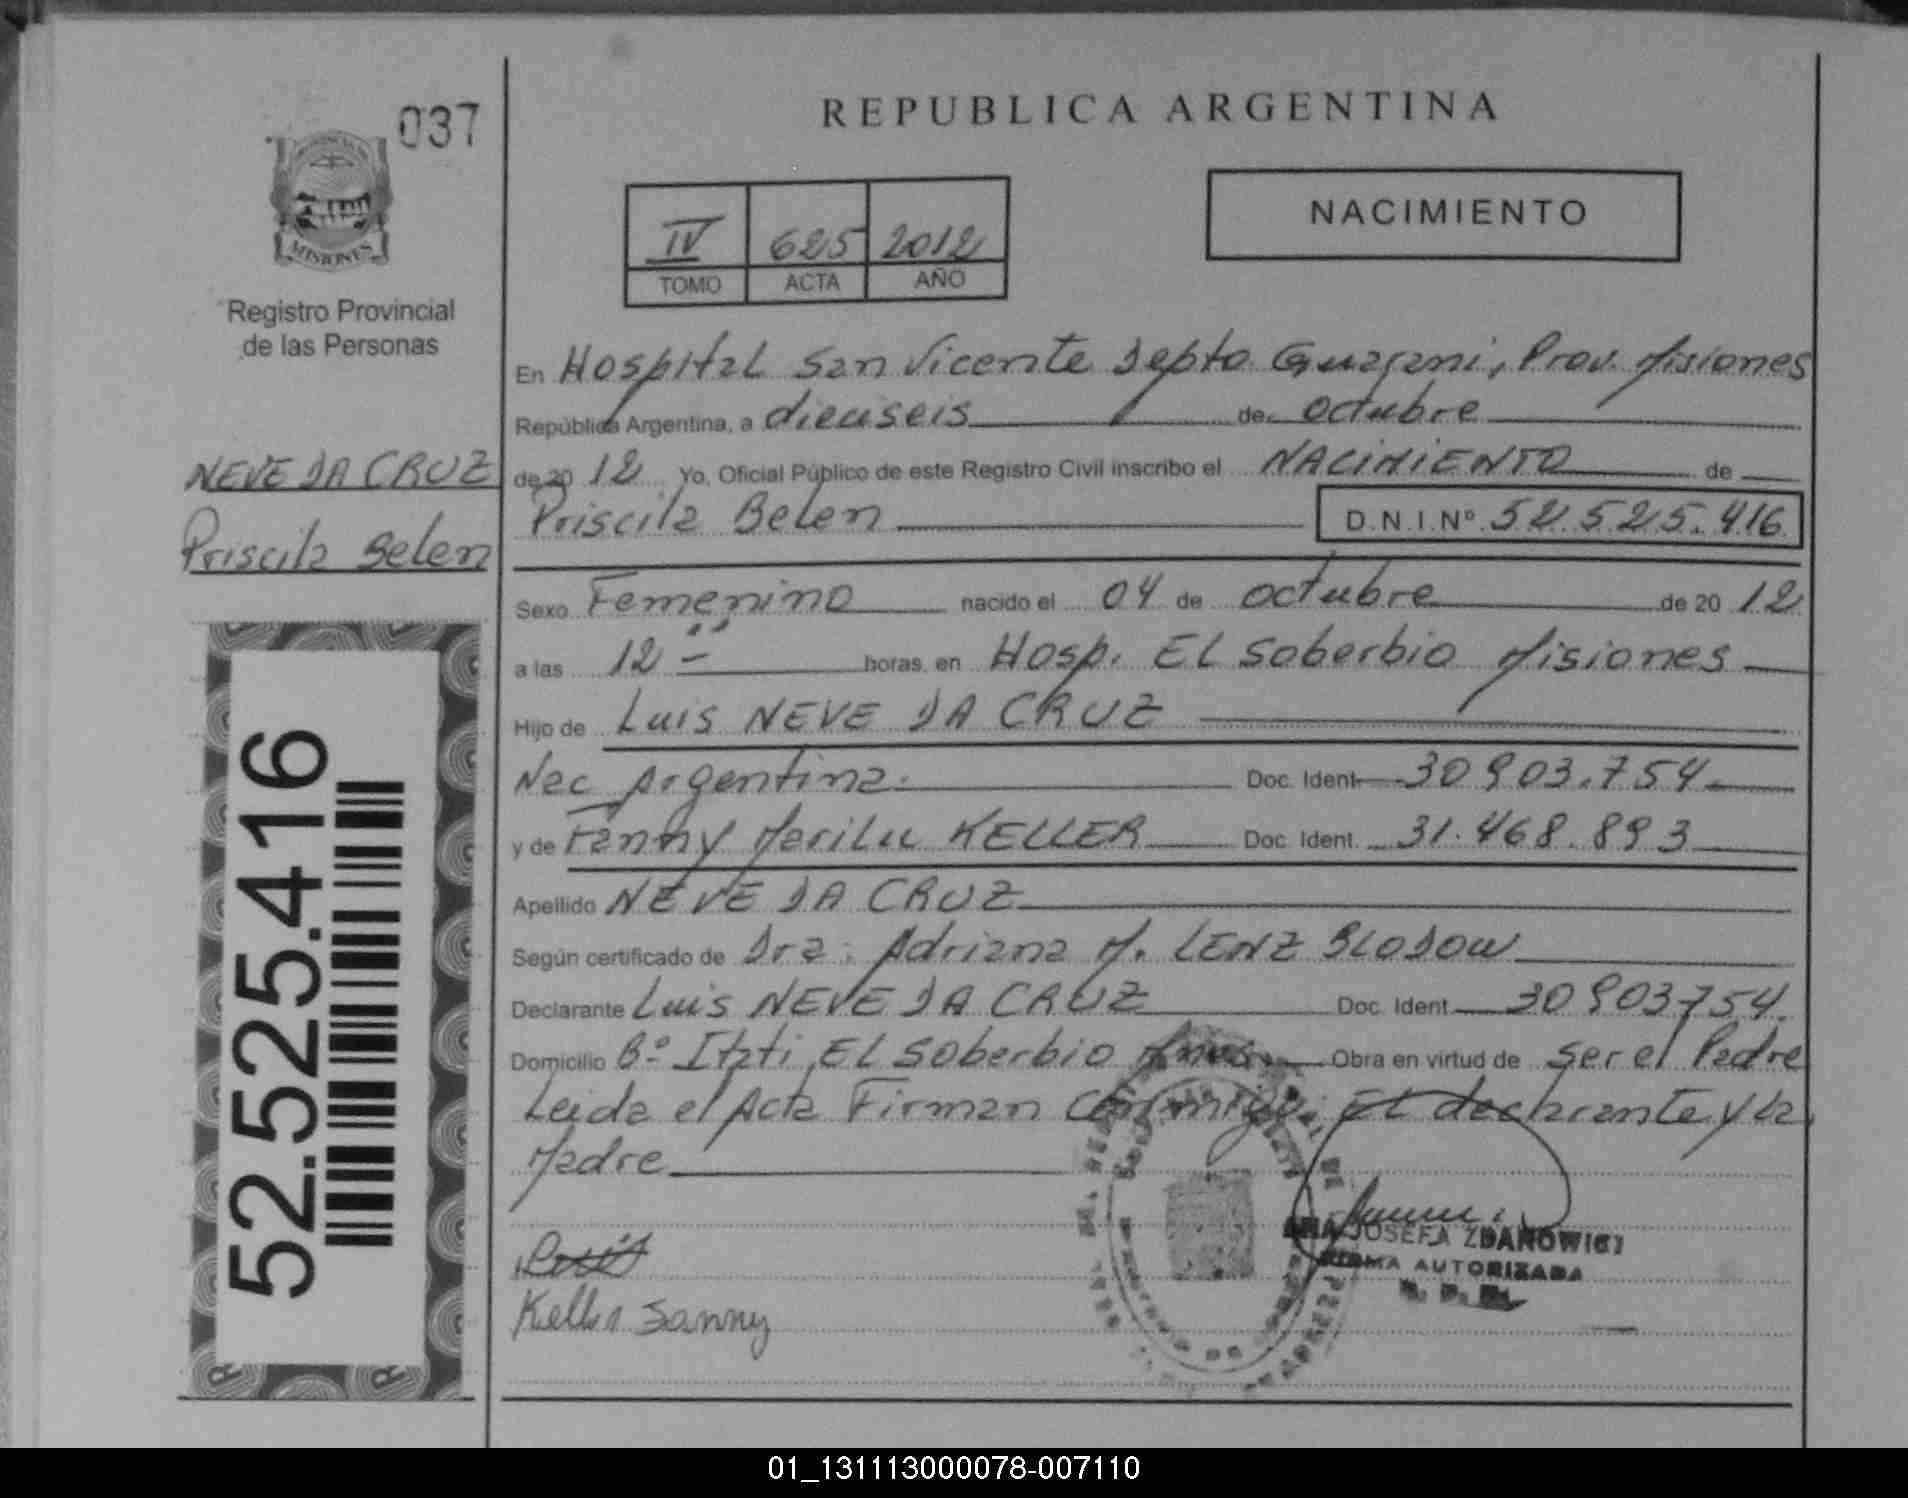 037
MISIONES
Registro Provincial
de las Personas
NEVE DA CRUZ
Priscila Belen
52.525.416
REPUBLICA ARGENTINA
IV 625 2012
TOMO ACTA AÑO
NACIMIENTO
En Hospital San Vicente Depto. Guarani, Prov. Misiones
República Argentina, a dieciseis de octubre
de 20 12 Yo, Oficial Público de este Registro Civil inscribo el NACIMIENTO de
Priscila Belen D.N.I.Nº 52.525.416
Sexo Femenino nacido el 04 de octubre de 20 12
a las 12 horas, en Hosp. El Soberbio Misiones
Hijo de Luis NEVE DA CRUZ
Nac Argentina. Doc. Ident. 30903.754
y de Fanny Marilu KELLER Doc. Ident. 31.468.893
Apellido NEVE DA CRUZ
Según certificado de Dra: Adriana M. LENZ BLODOW
Declarante Luis NEVE DA CRUZ Doc. Ident. 30903754.
Domicilio Bº Itati, El Soberbio Mnes. Obra en virtud de ser el Padre
Leida el Acta Firman Conmigo: El declarante y la
Madre
ANA JOSEFA ZDANOWICZ
FIRMA AUTORIZADA
Keller Fanny
01_131113000078-007110